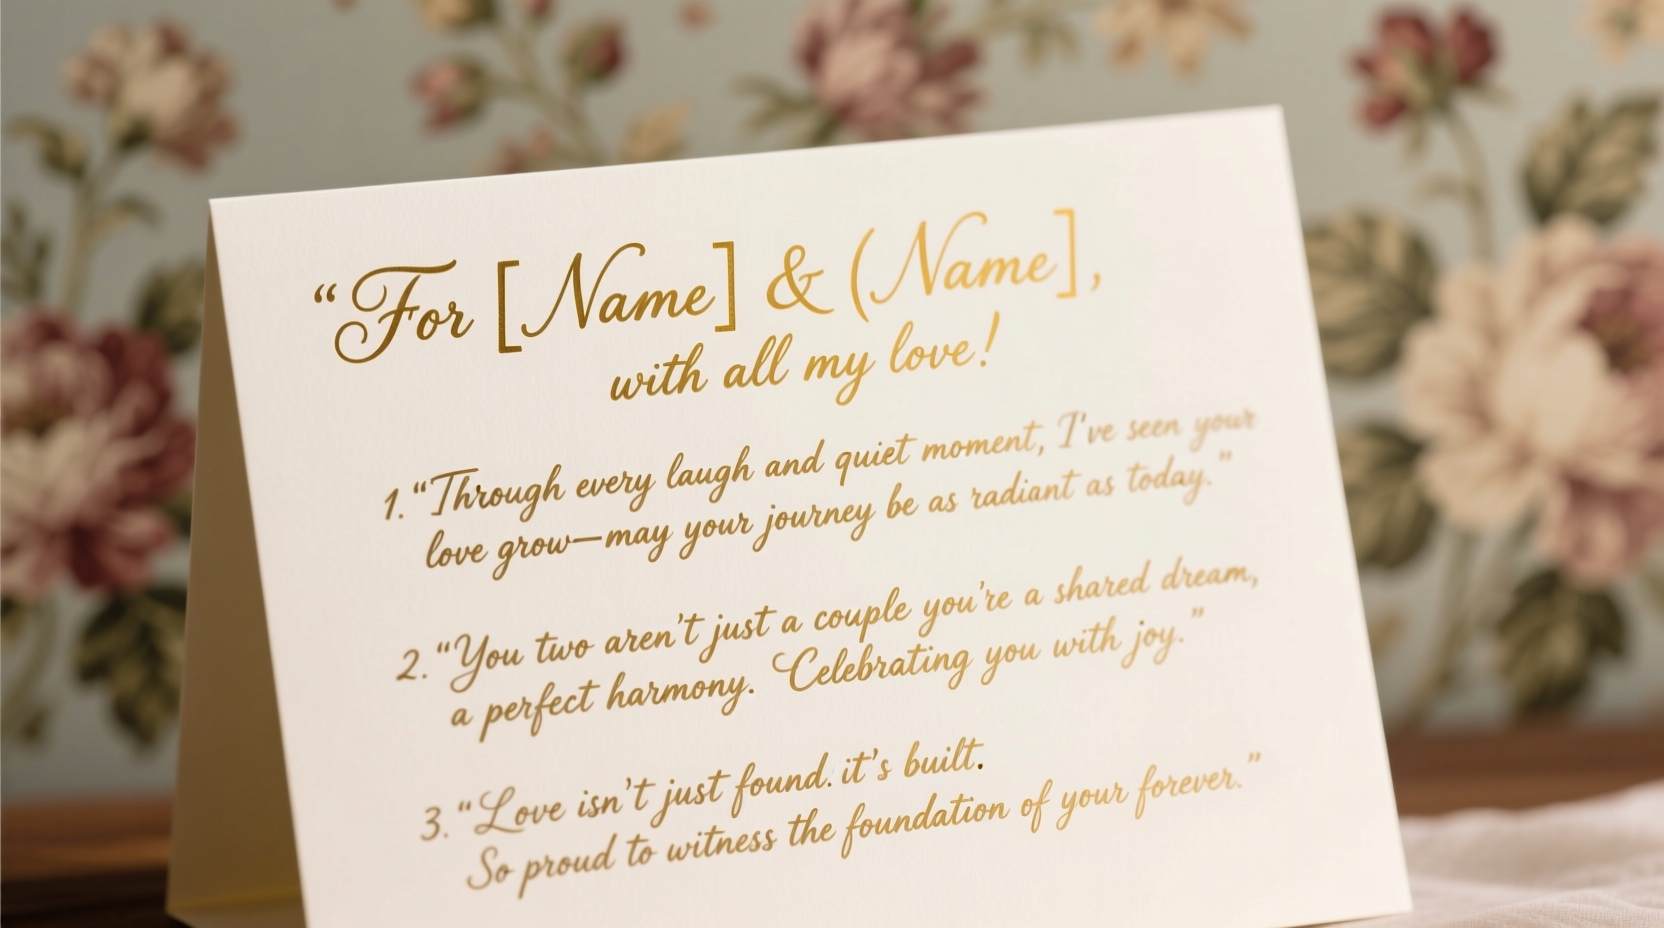 “For [Name] & (Name],
with all my love!
1. “Through every laugh and quiet moment, I've seen your
love grow—may your journey be as radiant as today.”
2. “You two aren't just a couple you're a shared dream,
a perfect harmony. Celebrating you with joy.”
3. “Love isn't just found. it's built.
So proud to witness the foundation of your forever.”